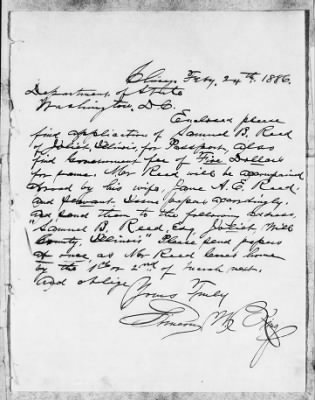 Chicago Feby. 24th, 1886.
Department of State
Washington, D.C.
Enclosed please
find application of Samuel B. Reed
of Joliet, Illinois, for Passport, also
find Government fee of Five Dollars
for same. Mr Reed will be accompanied
by his wife, Jane A. E. Reed,
and servant. Issue papers accordingly,
and send them to the following address,
"Samuel B. Reed, Esq. Joliet, Will
County, Illinois" Please send papers
at once, as Mr Reed leaves home
by the 1st or 2nd of March next.
And oblige
Yours Truly